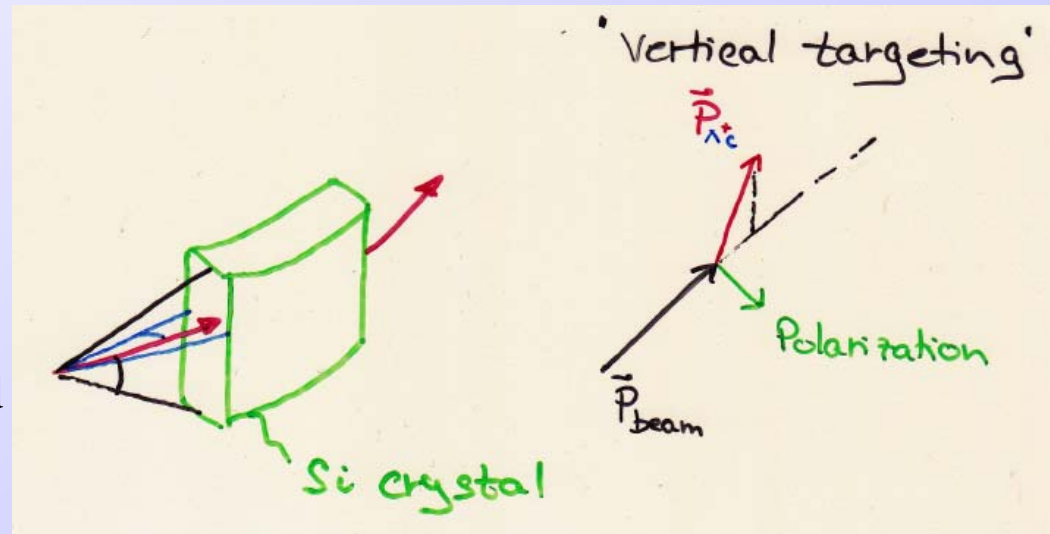 'Vertical targeting'
P⃗Λc⁺
Polarization
P⃗beam
Si crystal